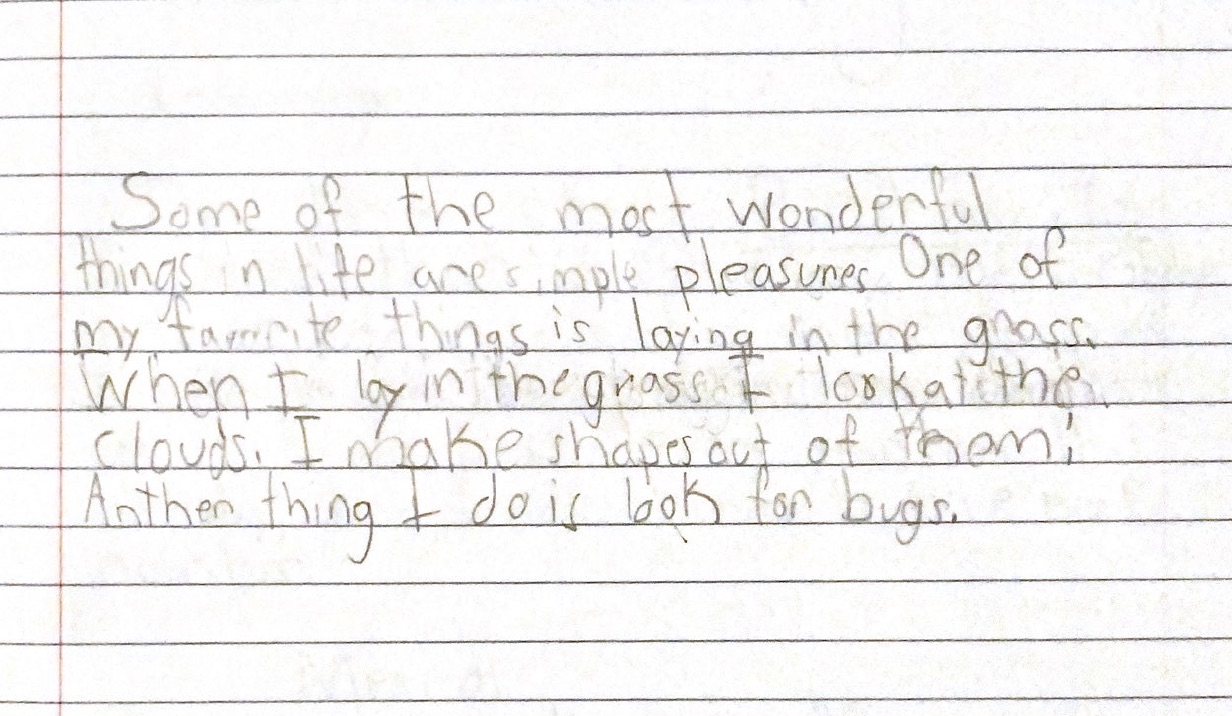 Some of the most wonderful
things in life are simple pleasures One of
my favorite things is laying in the grass.
When I lay in the grass I look at the
clouds. I make shapes out of them;
Anther thing I do is look for bugs.